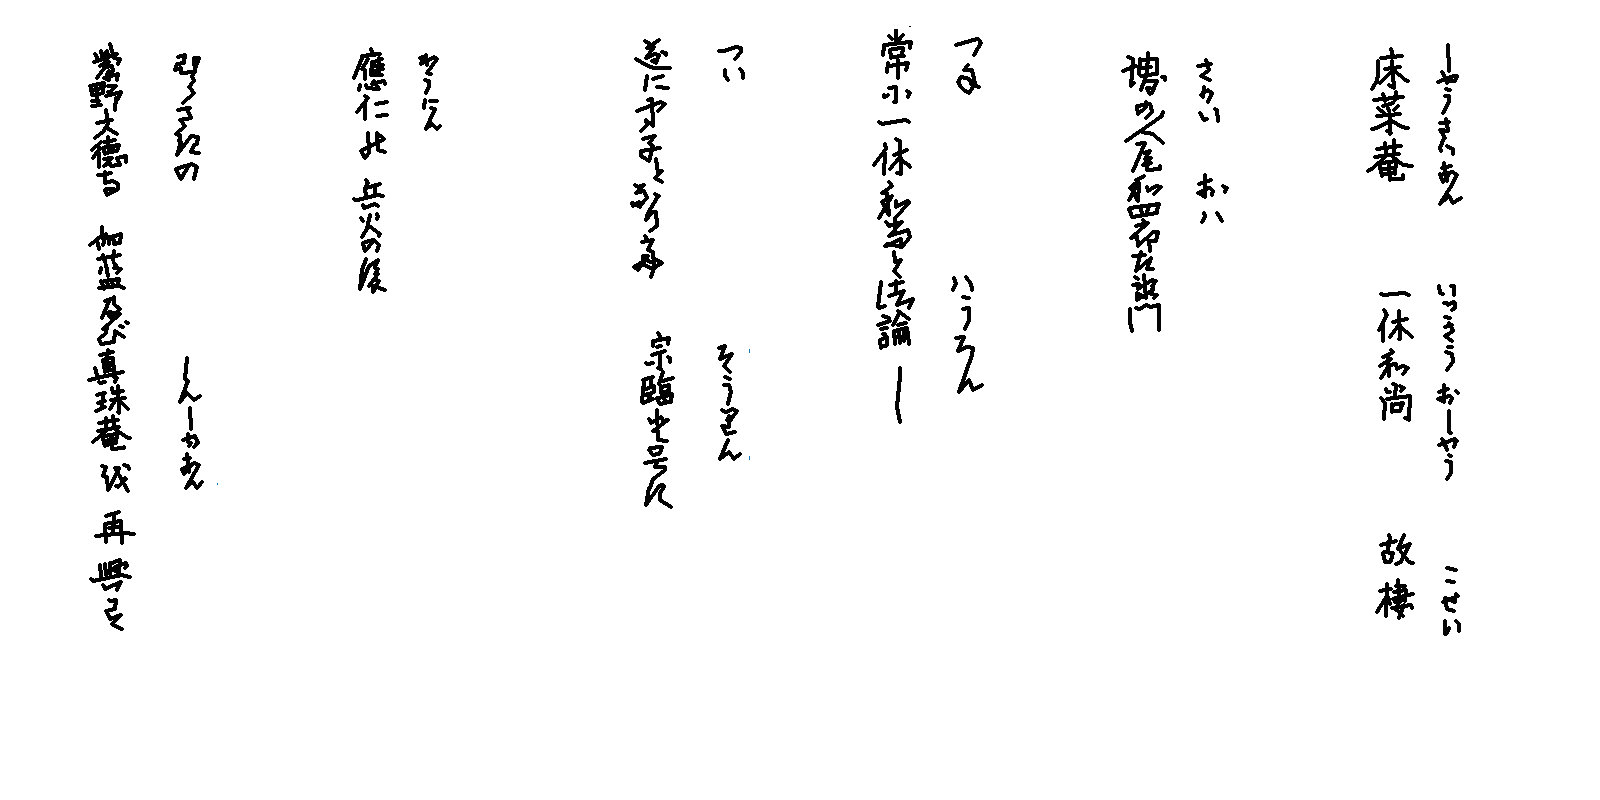 しやうさいあん いつきうおしやう こせい
床菜菴 一休和尚 故棲
さかい おハ
堺の人尾和四郎左衛門
つね ハうろん
常に一休和尚と法論し
つい そうりん
遂に弟子となり 宗臨と号す
わうにん
應仁の兵火の後
むらさきの しんしゆあん
紫野大徳寺 伽藍及び真珠菴を再興す